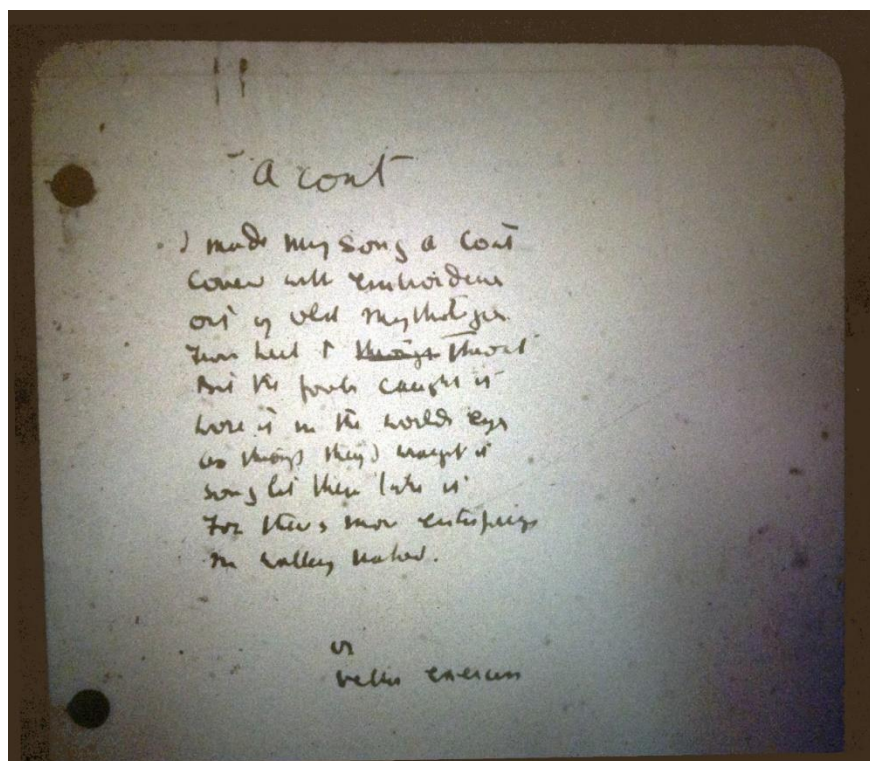 A Coat
I made my song a coat
Cover with embroideries
out of old mythologies
From heel to throat
But the fools caught it
wore it in the worlds eyes
as though they'd wrought it
song let them take it
For there's more enterprize
In walking naked.
or